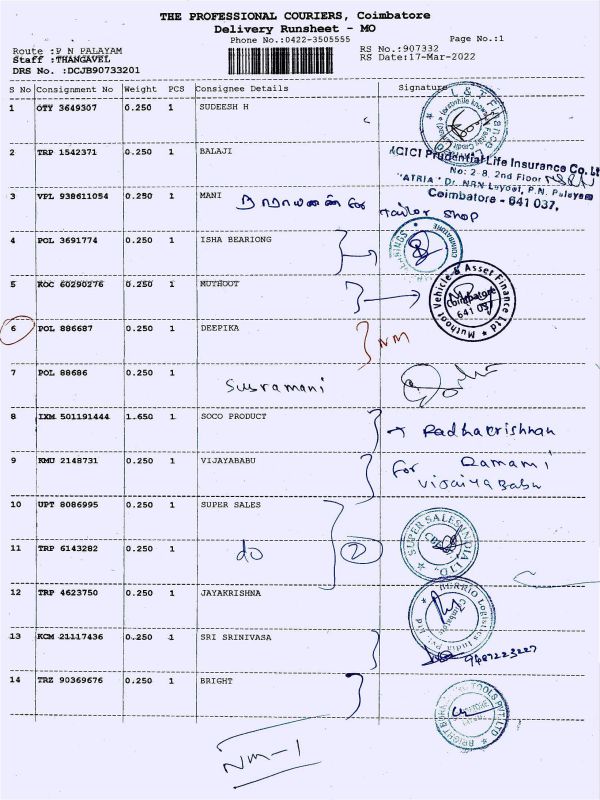 THE PROFESSIONAL COURIERS, Coimbatore
Delivery Runsheet - MO
Phone No.:0422-3505555 Page No.:1
Route :P N PALAYAM RS No.:907332
Staff :THANGAVEL RS Date:17-Mar-2022
DRS No. :DCJB90733201
S No Consignment No Weight PCS Consignee Details Signature
1 OTY 3649307 0.250 1 SUDEESH H
L & T Finance
2 TRP 1542371 0.250 1 BALAJI
ICICI Prudential Life Insurance Co. Lt
No: 2-8, 2nd Floor
"ATRIA" Dr. NRN Layout, P.N. Palayam
Coimbatore - 641 037.
3 VPL 938611054 0.250 1 MANI
நாராயணன் for Tailor shop
4 POL 3691774 0.250 1 ISHA BEARIONG
COIMBATORE
5 KOC 60290276 0.250 1 MUTHOOT
Muthoot Vehicle & Asset Finance Ltd
Coimbatore
641 037
6 POL 886687 0.250 1 DEEPIKA NM
7 POL 88686 0.250 1
Susramani
8 IXM 501191444 1.650 1 SOCO PRODUCT
Radhakrishnan
9 KMU 2148731 0.250 1 VIJAYABABU
for Ramami
Vijaiya Babu
10 UPT 8086995 0.250 1 SUPER SALES
SUPER SALES INDIA LTD.
11 TRP 6143282 0.250 1 do 2
12 TRP 4623750 0.250 1 JAYAKRISHNA
Logistics India Pvt. Ltd
Coimbatore
13 KCM 21117436 0.250 1 SRI SRINIVASA
9487223227
14 TRZ 90369676 0.250 1 BRIGHT
BRIGHT TOOLS PVT.LTD
NM-1